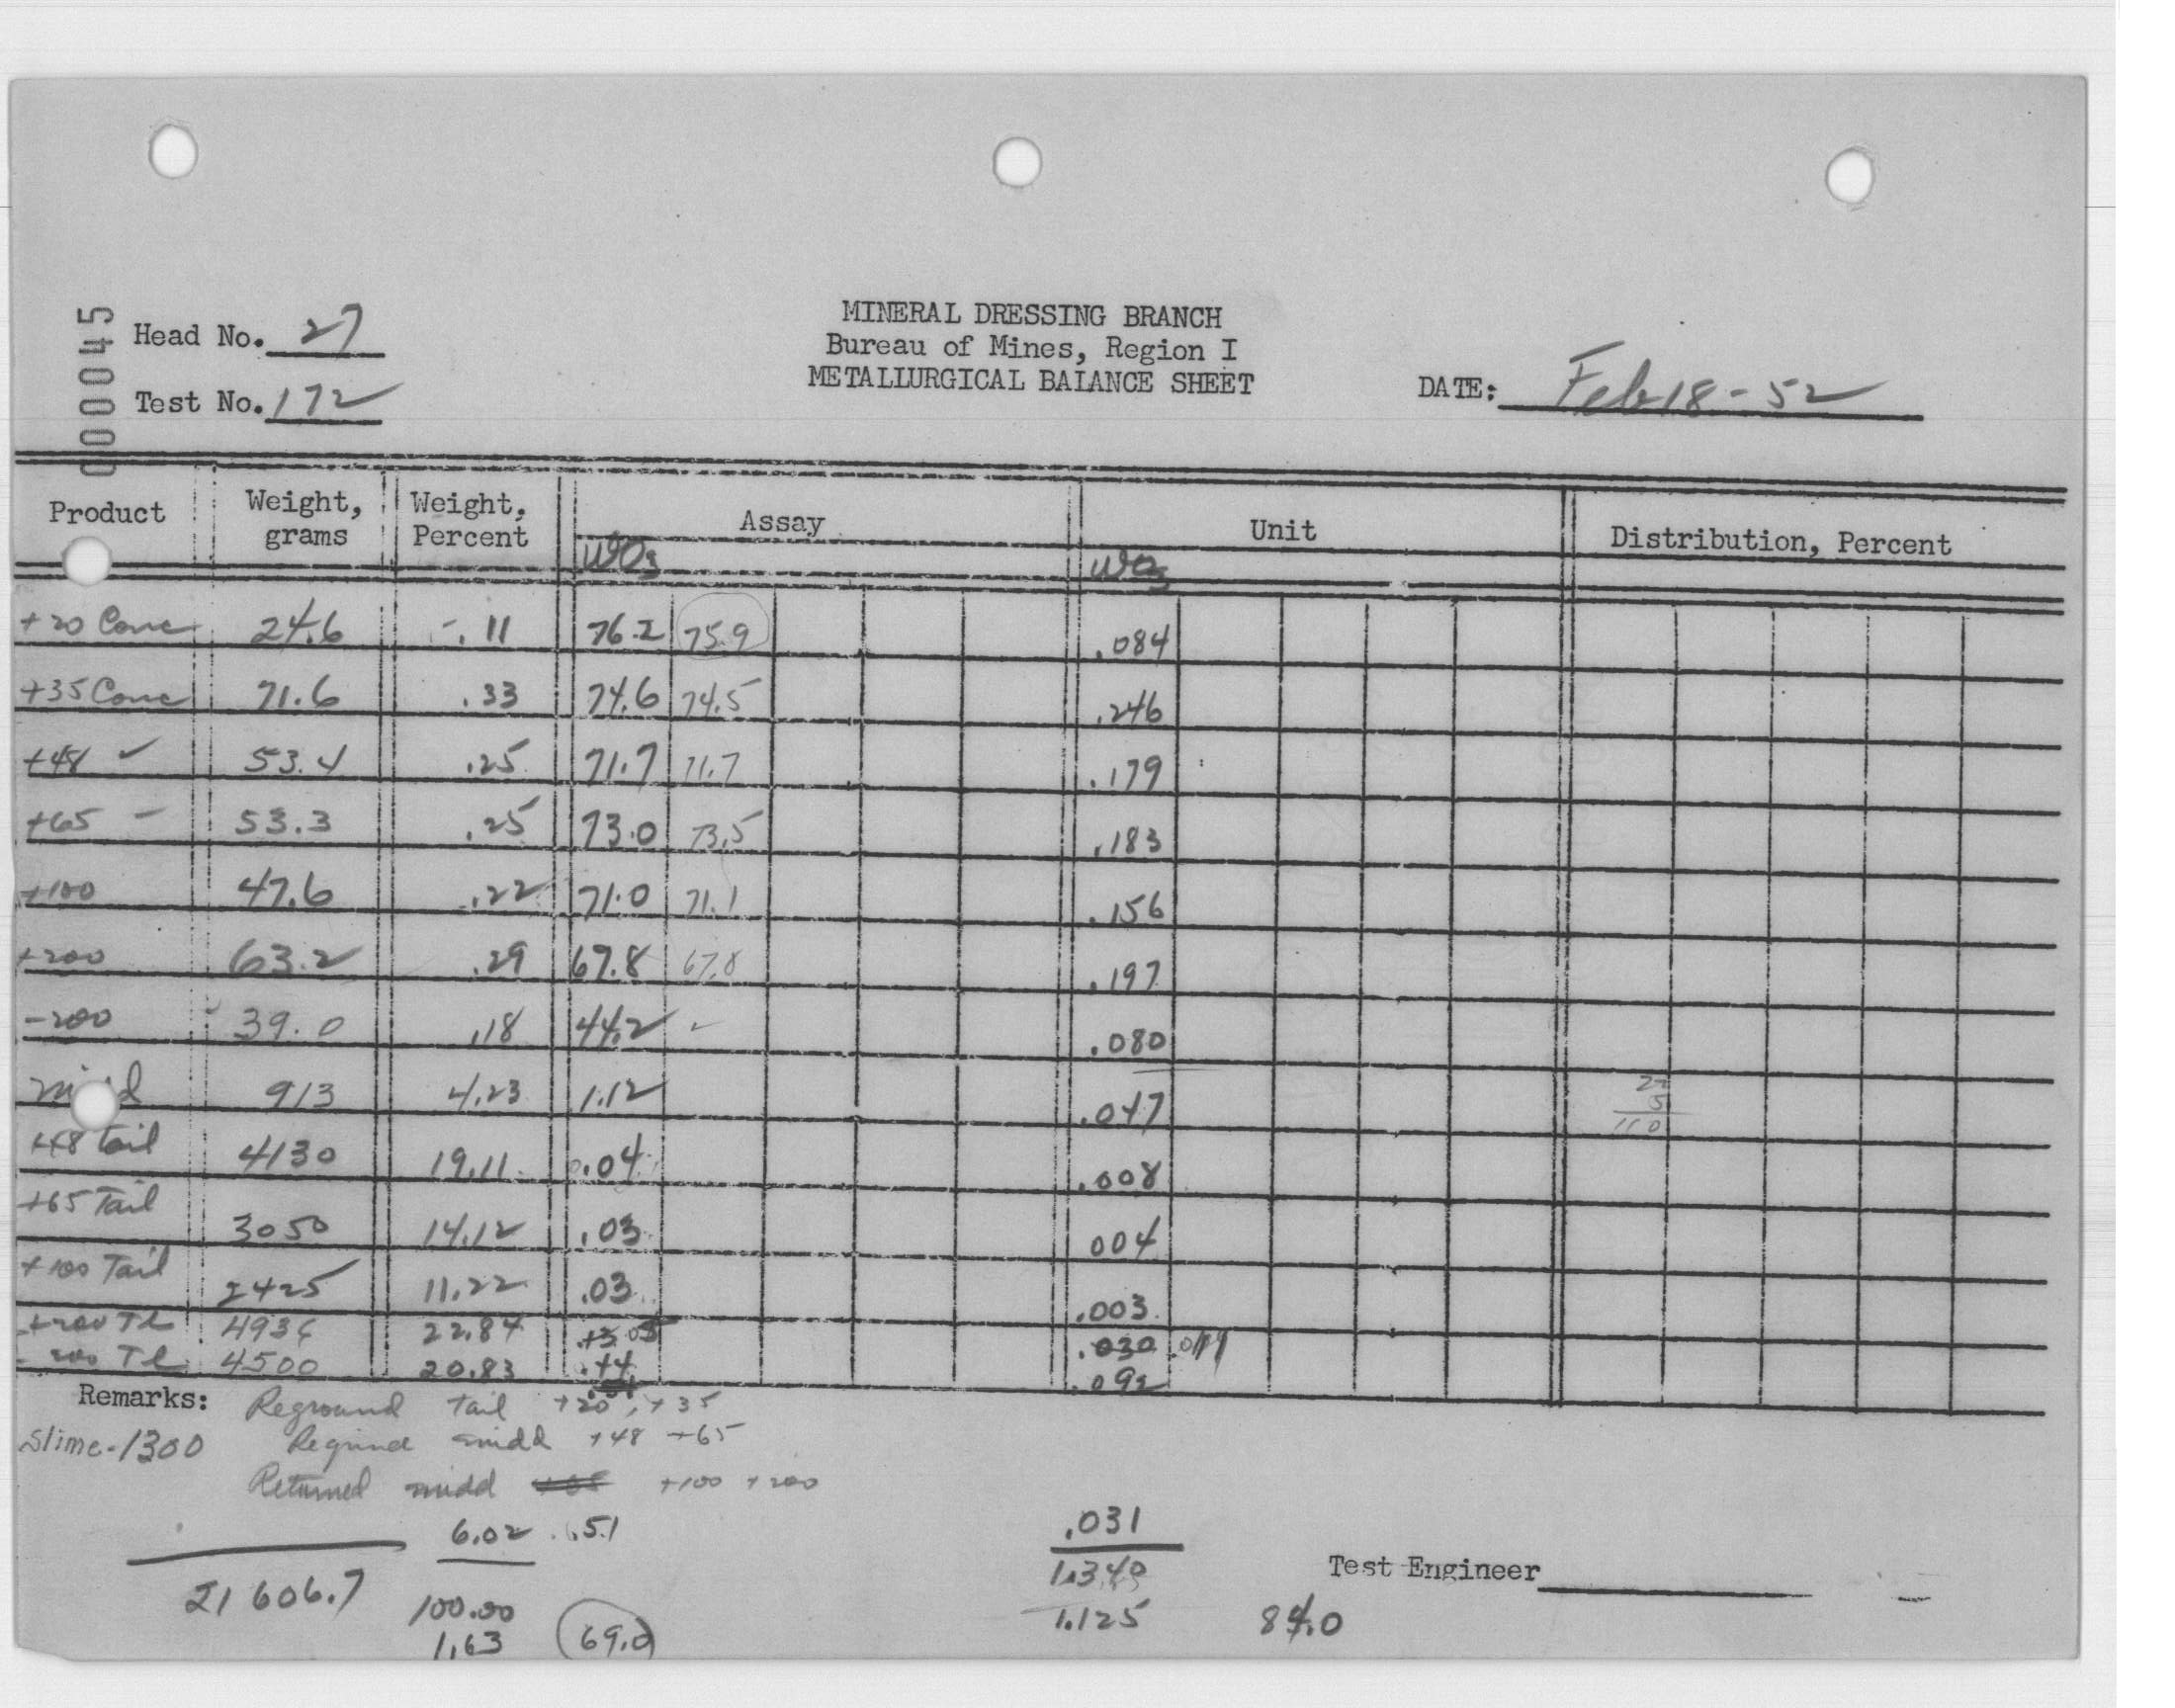 000045
Head No. 27
Test No. 172
MINERAL DRESSING BRANCH
Bureau of Mines, Region I
METALLURGICAL BALANCE SHEET
DATE: Feb 18-52
Product Weight, grams Weight, Percent Assay Unit Distribution, Percent
WO3 WO3
+20 Conc 24.6 .11 76.2 75.9 .084
+35 Conc 71.6 .33 74.6 74.5 .246
+48 53.4 .25 71.7 71.7 .179
+65 53.3 .25 73.0 73.5 .183
+100 47.6 .22 71.0 71.1 .156
+200 63.2 .29 67.8 67.8 .197
-200 39.0 .18 44.2 .080
913 4.23 1.12 .047
+48 tail 4130 19.11 .04 .008
+65 Tail 3050 14.12 .03 004
+100 Tail 2425 11.22 .03 .003
+200 TL 22.84 .030
-200 TL 4500 20.83 .44 .092
110
Remarks: Reground tail +20, +35
Slime-1300 midd +48 +65
Returned midd +100 +200
6.02 .51 .031
21606.7 100.00 1.340
1.63 69.0 1.125 84.0
Test Engineer